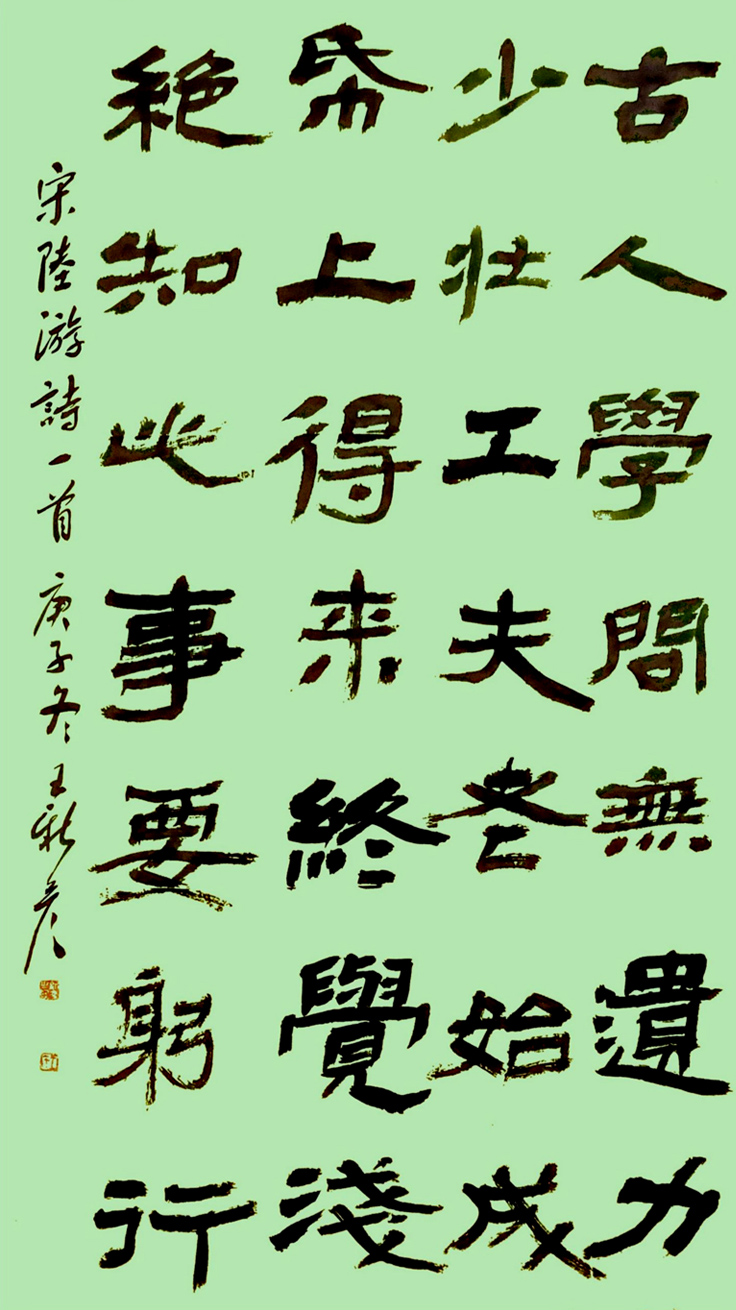 古人學問無遺力
少壮工夫老始成
帋上得來終覺淺
絶知此事要躬行
宋陸游詩一首 庚子冬 王新彦